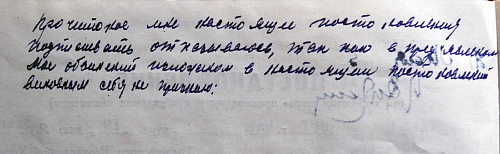 Прочитав мне настоящее постановления
Подписывать отказываюсь, так как в предъявленном
мне обвинений изложеном в настоящем постановлений
виновным себя не признаю: